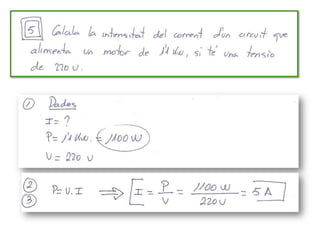 5 Calcula la intensitat del corrent d'un circuit que
alimenta un motor de 1'1 Kw, si té una tensió
de 220 V.
① Dades
I = ?
P = 1'1 Kw. = 1100 W
V = 220 V
② P = V. I ⇒ I = P / V = 1100 W / 220 V = 5 A
③